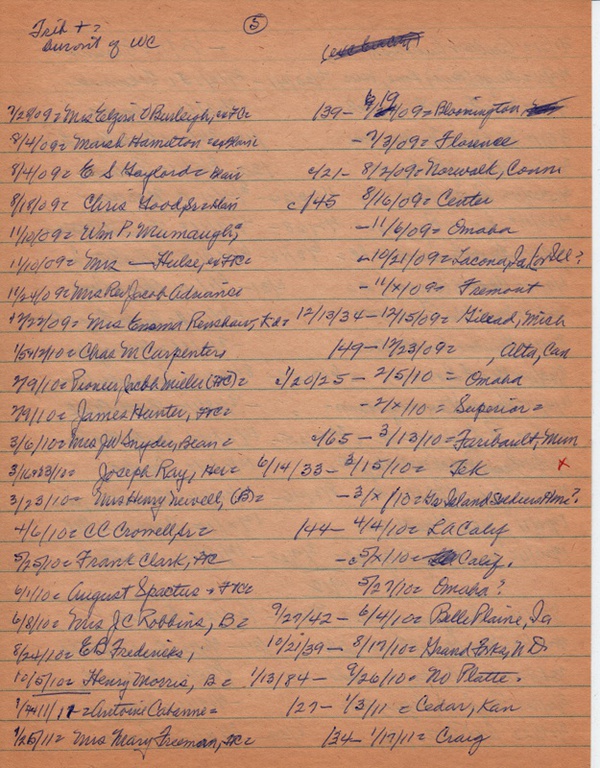 5
Trib + 2
Buront of WC
7/28/09 = Mrs Elzina D Burleigh, ex FC = /39 - 6/19/09 = Bloomington,
8/4/09 = Marsh Hamilton = ex Blair - 7/3/09 = Florence
8/4/09 = E S Gaylord = Blair c/21 - 8/2/09 = Norwalk, Conn
8/18/09 = Chris Good Sr = Blair c/45 8/16/09 = Center
11/10/09 = Wm P. Mumaugh, - 11/6/09 = Omaha
11/10/09 = Mrs — Hulse, ex FC = - 10/21/09 = Lacona, Ia (or Ill?
11/24/09 = Mrs Rev Jacob Adriance - 11/x/09 = Fremont
12/22/09 = Mrs Emma Renshaw, Kd = 12/13/34 - 12/15/09 = Gilead, Mich
1/5 + 12/10 = Chas M Carpenter = /49 - 12/23/09 = , Alta, Can
2/9/10 = Pioneer, Jacob Miller (FC) = 1/20/25 - 2/5/10 = Omaha
2/9/10 = James Hunter, FC = - 2/x/10 = Superior =
3/6/10 = Mrs JW Snyder, Bean = c/65 - 3/13/10 = Faribault, Minn
3/16 + 23/10 = Joseph Ray, Her = 6/14/33 - 3/15/10 = Tek x
3/23/10 = Mrs Henry Newell, (B) = - 3/x/10 = Gr Island Soldiers Home?
4/6/10 = CC Crowell Sr = /44 - 4/4/10 = LA Calif
5/25/10 = Frank Clark, FC - c5/x/10 = Calif.
6/1/10 = August Spactus, FC = 5/27/10 = Omaha?
6/8/10 = Mrs JC Robbins, B = 9/27/42 - 6/4/10 = Belle Plaine, Ia
8/24/10 = EB Fredericks, 10/21/39 - 8/17/10 = Grand Forks, N D.
10/5/10 = Henry Morris, B = 1/13/84 - 9/26/10 = No Platte.
1/4 + 11/11 = Antoine Cabanne = /27 - 1/3/11 = Cedar, Kan
1/25/11 = Mrs Mary Freeman, FC = /34 - 1/17/11 = Craig